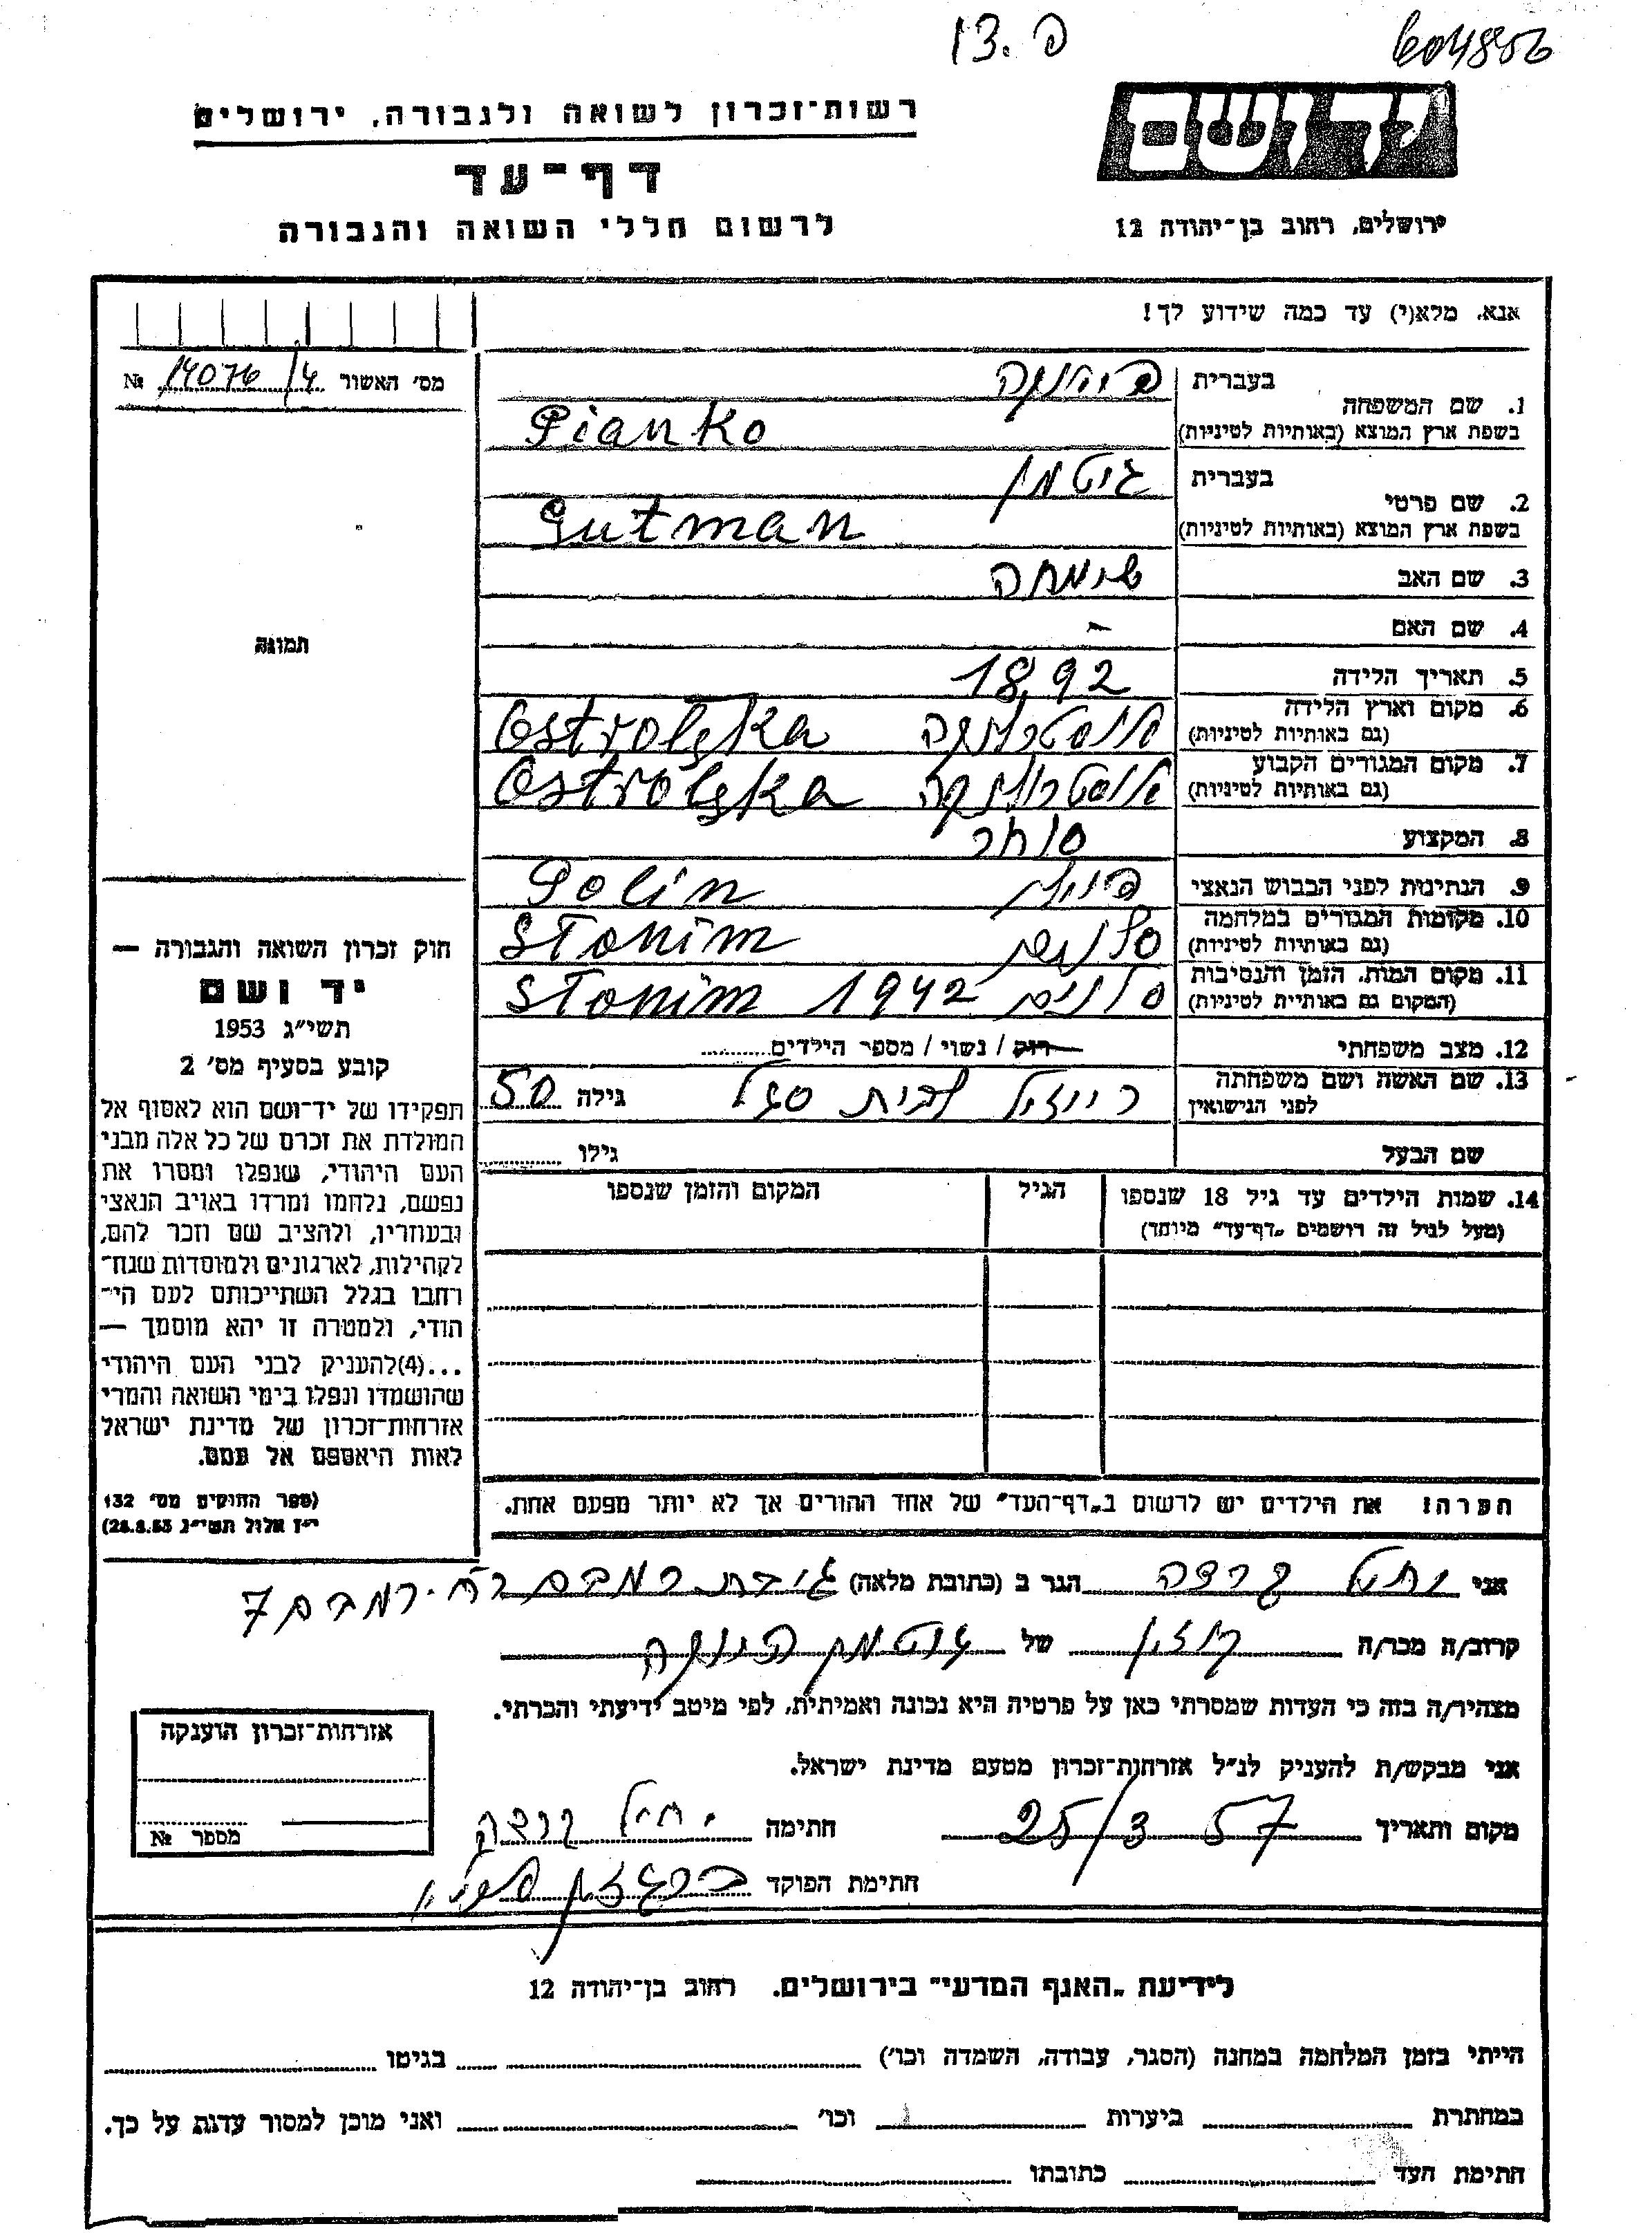 פ. 13
604856
יד ושם
ירושלים, רחוב בן־יהודה 12
רשות־זכרון לשואה ולגבורה, ירושלים
דף־עד
לרשום חללי השואה והגבורה
אנא, מלא(י) עד כמה שידוע לך!
מס׳ האשור 14076/4 №
תמונה
1. שם המשפחה
בעברית פיינקה
בשפת ארץ המוצא (באותיות לטיניות) Pianko
2. שם פרטי
בעברית גוטמן
בשפת ארץ המוצא (באותיות לטיניות) Gutman
3. שם האב שימחה
4. שם האם -
5. תאריך הלידה 1892
6. מקום וארץ הלידה
(גם באותיות לטיניות) אוסטרולנקה Ostrolęka
7. מקום המגורים הקבוע
(גם באותיות לטיניות) אוסטרולנקה Ostrolęka
8. המקצוע סוחר
9. הנתינות לפני הכבוש הנאצי פולין Polin
10. מקומות המגורים במלחמה
(גם באותיות לטיניות) סלונים Słonim
11. מקום המות, הזמן והנסיבות
(המקום גם באותיית לטיניות) סלונים 1942 Słonim
12. מצב משפחתי רוק / נשוי / מספר הילדים
13. שם האשה ושם משפחתה
לפני הנישואין רייזל לבית סגל גילה 50
שם הבעל גילו
14. שמות הילדים עד גיל 18 שנספו הגיל המקום והזמן שנספו
(מעל לגיל זה רושמים „דף־עד" מיוחד)
הערה! את הילדים יש לרשום ב„דף־העד" של אחד ההורים אך לא יותר מפעם אחת.
חוק זכרון השואה והגבורה —
יד ושם
תשי״ג 1953
קובע בסעיף מס׳ 2
תפקידו של יד־ושם הוא לאסוף אל
המולדת את זכרם של כל אלה מבני
העם היהודי, שנפלו ומסרו את
נפשם, נלחמו ומרדו באויב הנאצי
ובעוזריו, ולהציב שם וזכר להם,
לקהילות, לארגונים ולמוסדות שנח־
רחבו בגלל השתייכותם לעם הי־
הודי, ולמטרה זו יהא מוסמך —
...(4)להעניק לבני העם היהודי
שהושמדו ונפלו בימי השואה והמרי
אזרחות־זכרון של מדינת ישראל
לאות היאספם אל עמם.
(ספר החוקים מס׳ 132
י״ז אלול תשי״ג 28.8.53)
אני הגר ב (כתובת מלאה) גבעת רמבם רח. רמבם 7
קרוב/ה מכר/ה קוזין של גוטמן פיינקה
מצהיר/ה בזה כי העדות שמסרתי כאן על פרטיה היא נכונה ואמיתית, לפי מיטב ידיעתי והכרתי.
אני מבקש/ת להעניק לנ״ל אזרחות־זכרון מטעם מדינת ישראל.
מקום ותאריך 25/3 57 חתימה
חתימת הפוקד
אזרחות־זכרון הוענקה
מספר №
לידיעת „האגף המדעי" בירושלים, רחוב בן־יהודה 12
הייתי בזמן המלחמה במחנה (הסגר, עבודה, השמדה וכו׳) בגיטו
במחתרת ביערות וכו׳ ואני מוכן למסור עדות על כך.
חתימת העד כתובתו